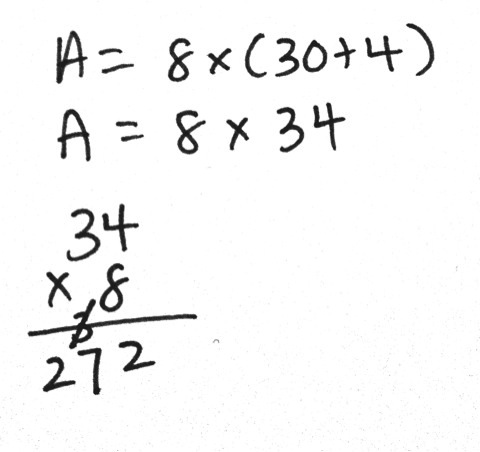 A = 8 × (30+4)
A = 8 × 34
34
× 8
272